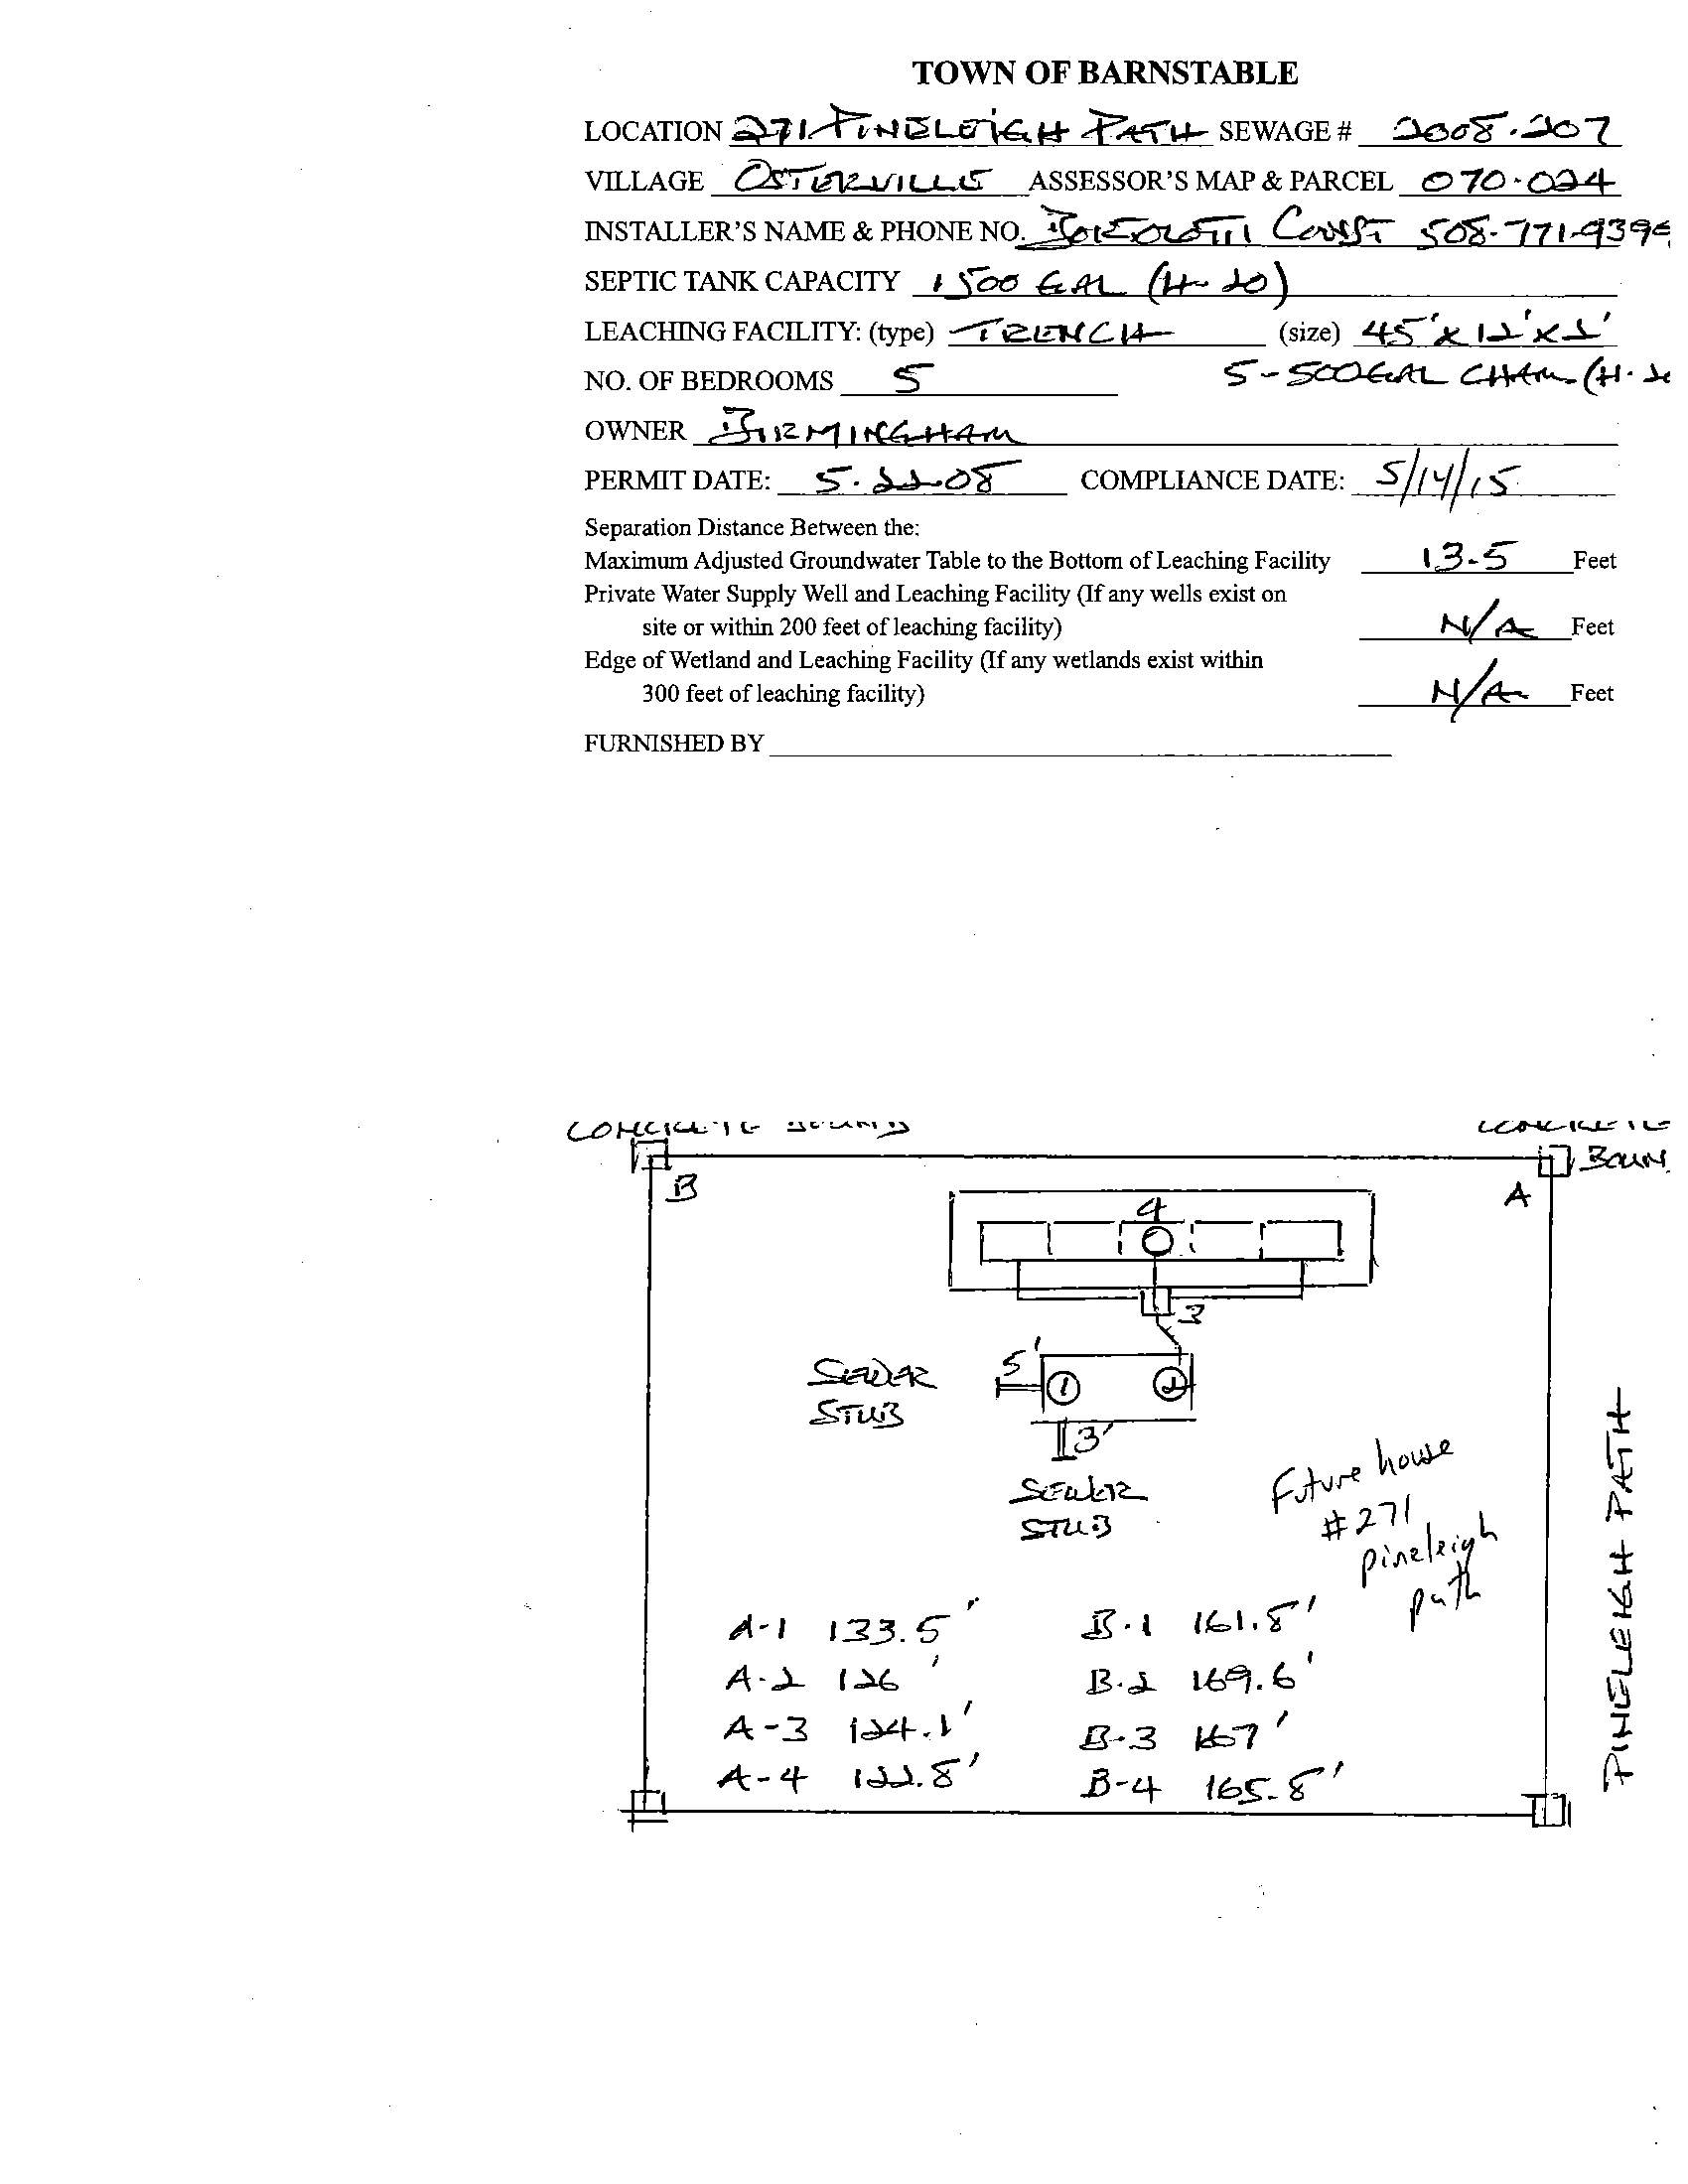 TOWN OF BARNSTABLE
LOCATION 271 PINELEIGH PATH SEWAGE # 2008-207
VILLAGE OSTERVILLE ASSESSOR'S MAP & PARCEL 070-024
INSTALLER'S NAME & PHONE NO. BORTOLOTTI CONST 508-771-939
SEPTIC TANK CAPACITY 1500 GAL (H-20)
LEACHING FACILITY: (type) TRENCH (size) 45'x12'x2'
NO. OF BEDROOMS 5 5-500GAL CHAM. (H-20
OWNER BIRMINGHAM
PERMIT DATE: 5-22-08 COMPLIANCE DATE: 5/14/15
Separation Distance Between the:
Maximum Adjusted Groundwater Table to the Bottom of Leaching Facility 13.5 Feet
Private Water Supply Well and Leaching Facility (If any wells exist on
site or within 200 feet of leaching facility) N/A Feet
Edge of Wetland and Leaching Facility (If any wetlands exist within
300 feet of leaching facility) N/A Feet
FURNISHED BY
CONCRETE BOUND CONCRETE
BOUN
B A
4
3
5'
SEWER
STUB
1 2
3'
SEWER
STUB
Future house
#271
pineleigh
path
PINELEIGH PATH
A-1 133.5' B-1 161.8'
A-2 126' B-2 169.6'
A-3 124.1' B-3 167'
A-4 122.8' B-4 165.8'